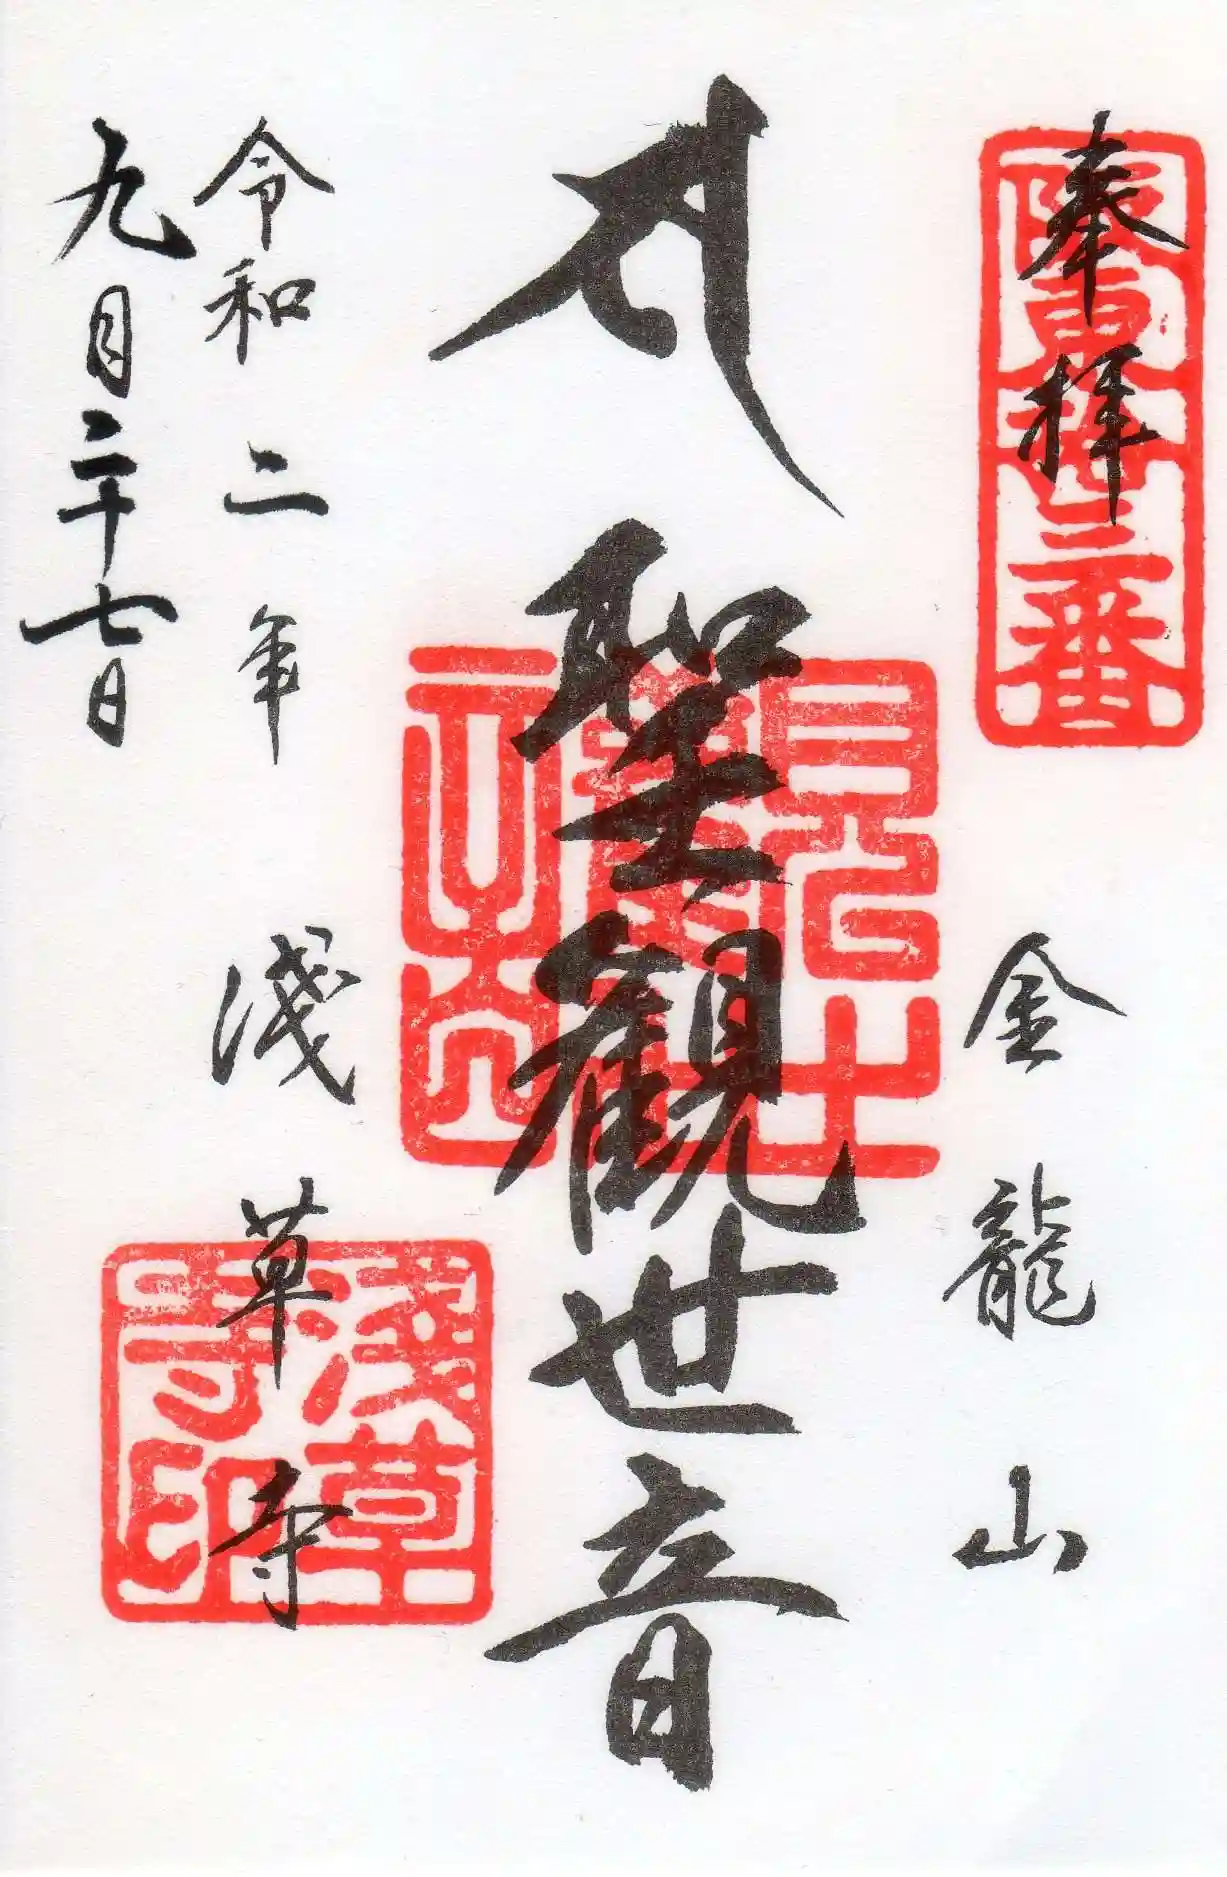 奉拝
坂東拾三番
金龍山
𑖭
聖観世音
令和二年
九月二十七日
浅草寺
浅草寺印